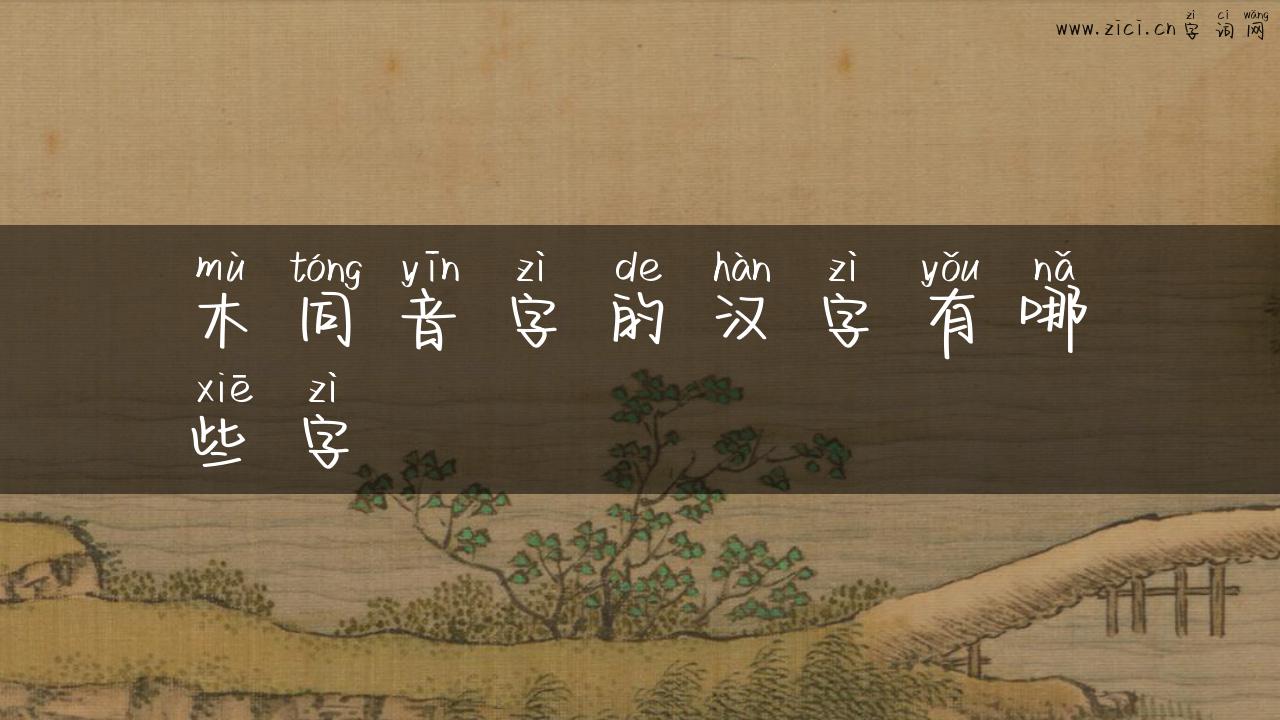 zì cí wǎng
www.zici.cn 字 词 网
mù tóng yīn zì de hàn zì yǒu nǎ
木 同 音 字 的 汉 字 有 哪
xiē zì
些 字